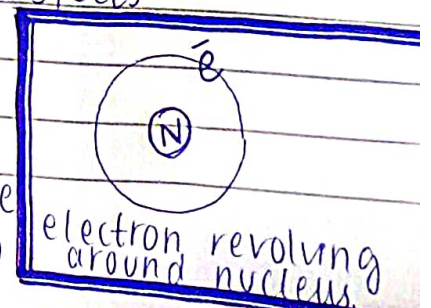 ē
N
e
electron revolving
around nucleus.